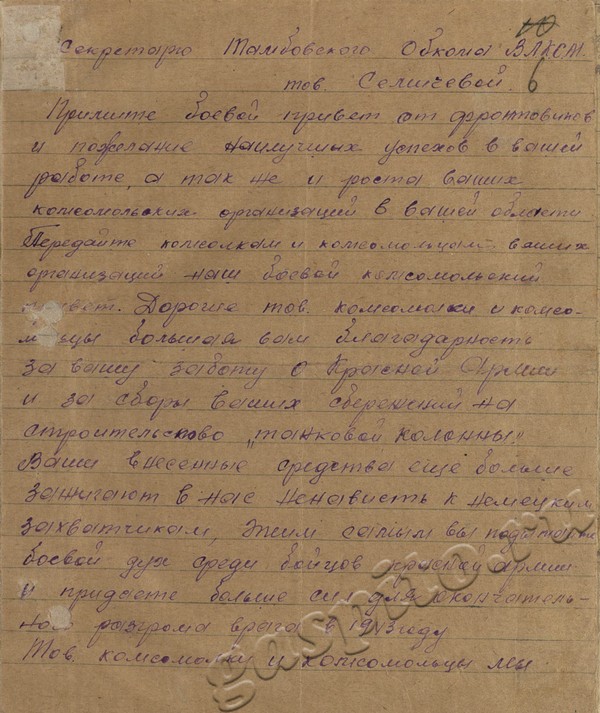 10
Секретарю Тамбовского Обкома ВЛКСМ.
тов. Селичевой. 6
Примите боевой привет от фронтовиков
и пожелание наилучших успехов в вашей
работе, а так же и роста ваших
комсомольских организаций в вашей области.
Передайте комсомолкам и комсомольцам ваших
организаций наш боевой комсомольский
привет. Дорогие тов. комсомолки и комсо-
мольцы большая вам благодарность
за вашу заботу о Красной Армии
и за сборы ваших сбережений на
строительство „танковой колонны"
Ваши внесенные средства еще больше
зажигают в нас ненависть к немецким
захватчикам, этим самым вы
боевой дух среди бойцов красной армии
и придаете больше сил для окончатель-
ного разгрома врага в 1943 году
Тов. комсомолки и комсомольцы мы
gaspito.ru